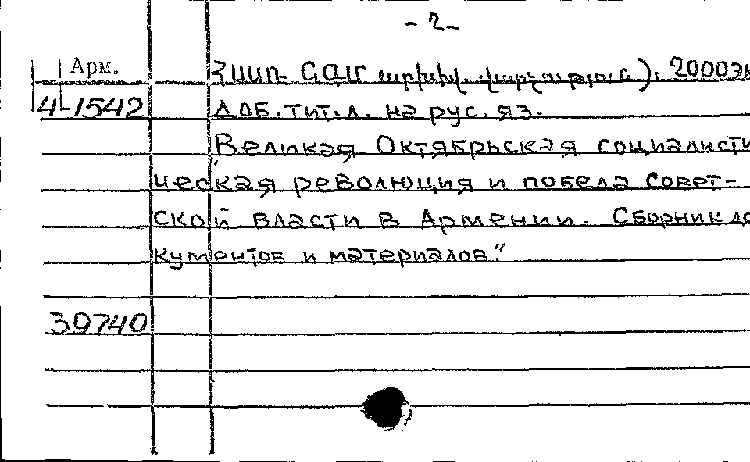 - 2 -
Арм.
ՀՍՍՌ ). 2000эк
4-1542 Доб. тит. л. на рус. яз.
"Великая Октябрьская социалисти
ческая революция и победа Совет-
ской власти в Армении. Сборник до
кументов и материалов."
39740